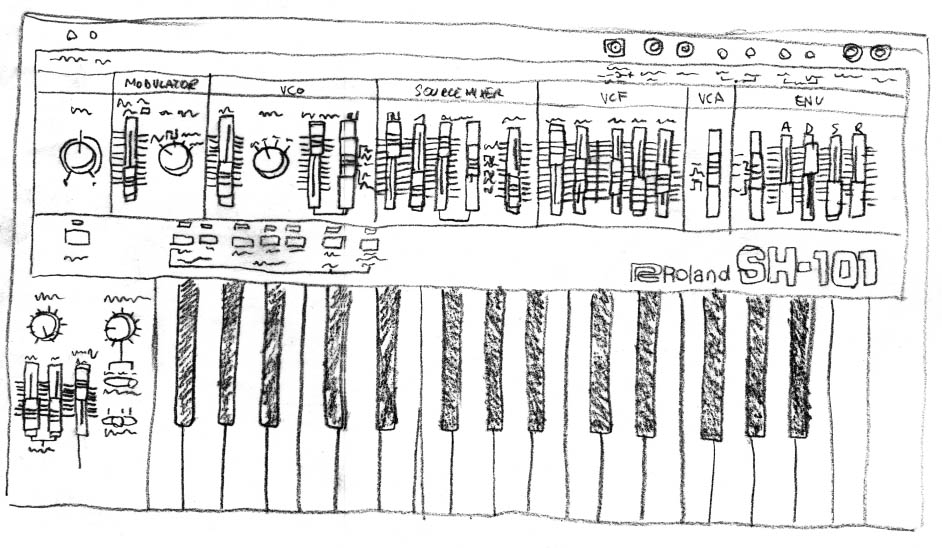 MODULATOR VCO SOURCE MIXER VCF VCA ENV
A D S R
Roland SH-101